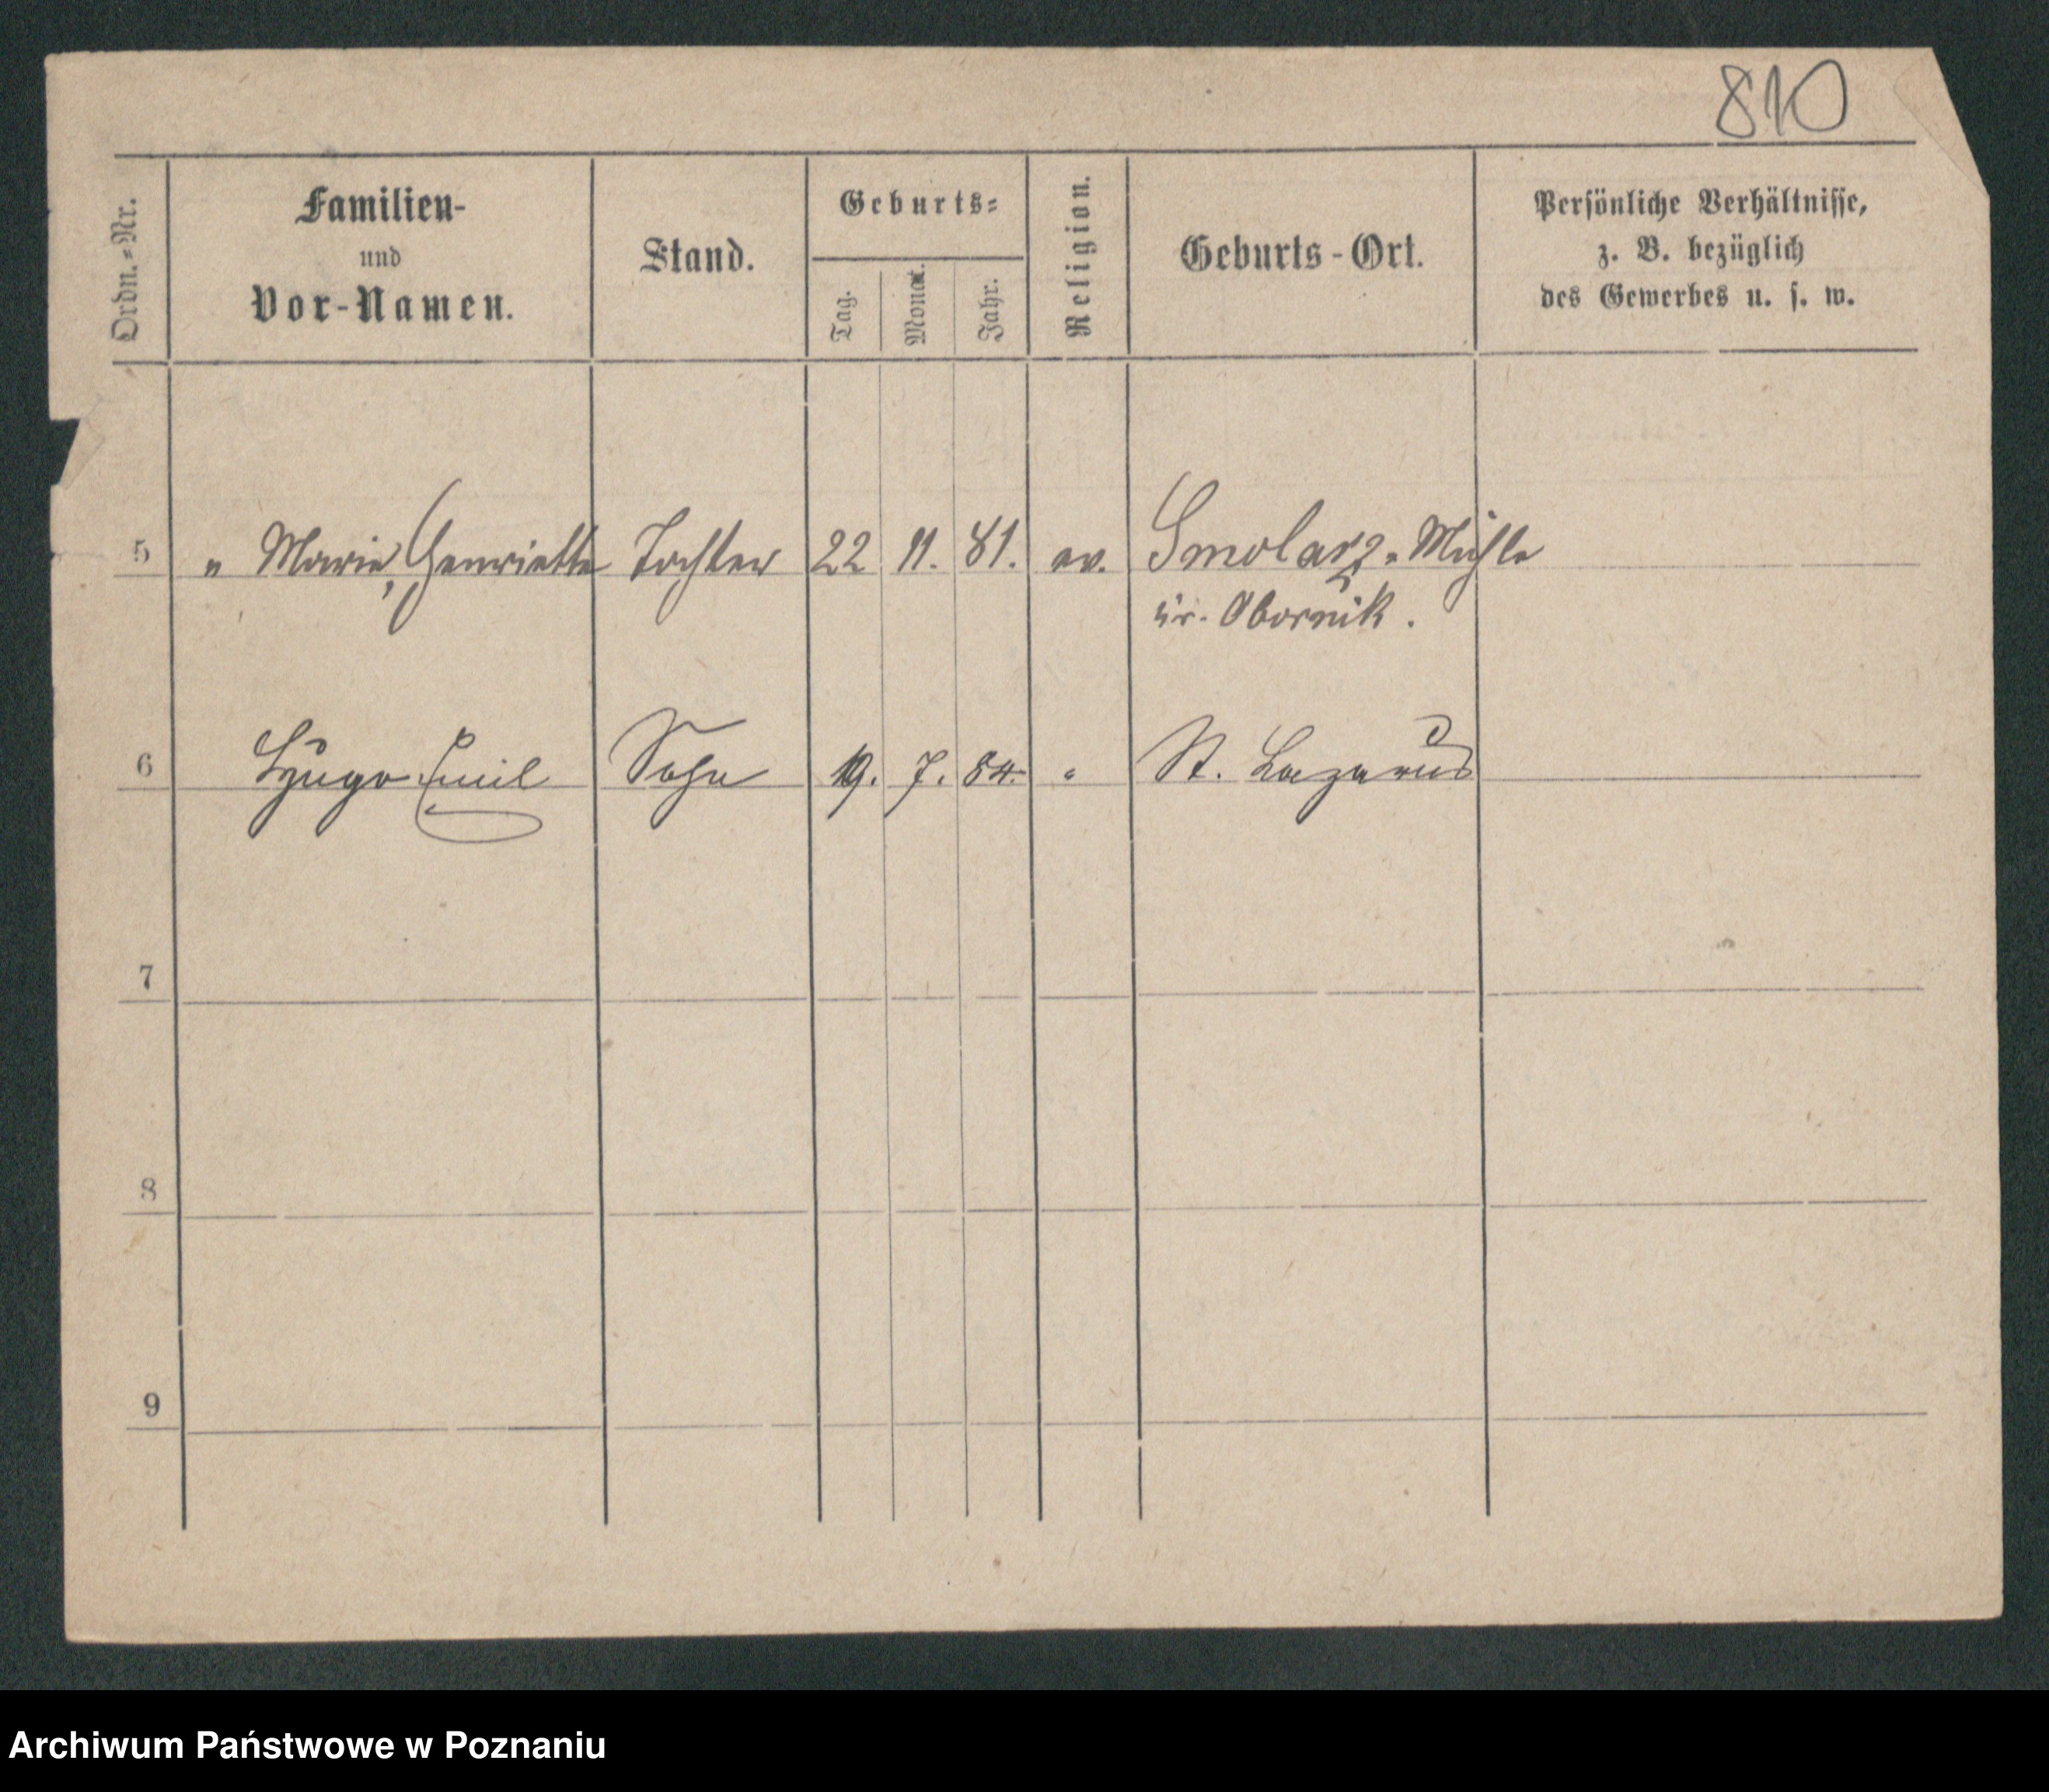 810
Ordn.-Nr.
Familien-
und
Vor-Namen.
Stand.
Geburts-
Tag.
Monat.
Jahr.
Religion.
Geburts-Ort.
Persönliche Verhältnisse,
z. B. bezüglich
des Gewerbes u. s. w.
5 " Marie, Henriette Tochter 22 11. 81. ev. Smolarz-Mühle
Kr. Obornik.
6 Hugo Emil Sohn 19. 7. 84. " St. Lazarus
7
8
9
Archiwum Państwowe w Poznaniu